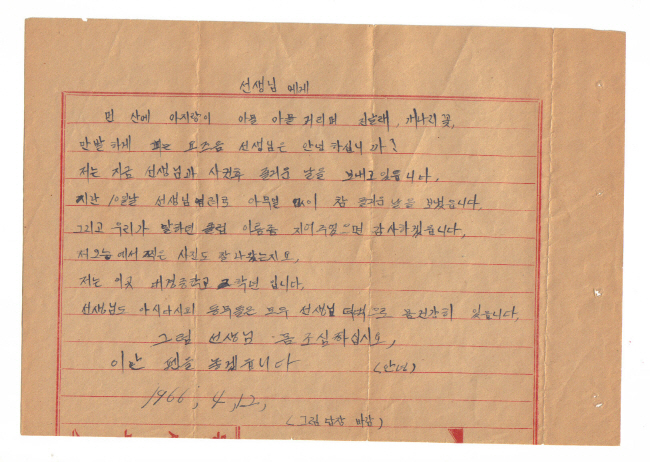 선생님 에게
먼 산에 아지랑이 아물 아물 거리며 진달래, 개나리 꽃,
만발 하게 피는 요즈음 선생님은 안녕 하십니까?
저는 지금 선생님과 사귄후 즐거운 날을 보내고 있읍니다.
지난 10일날 선생님 아무일 없이 참 즐거운 날을 보냈읍니다.
그리고 우리가 말하던 클럽 이름좀 지어주셨으면 감사하겠읍니다.
서오능에서 찍은 사진도 잘 나왔는지요,
저는 이곳 중학교 2학년 입니다.
선생님도 아시다시피 동무들은 모두 선생님 덕택으로 몸건강히 있읍니다.
그럼 선생님 몸 조심 하십시오,
이만 펜을 놓겠읍니다 (안녕)
1966, 4, 12,
(그럼 답장 바람)